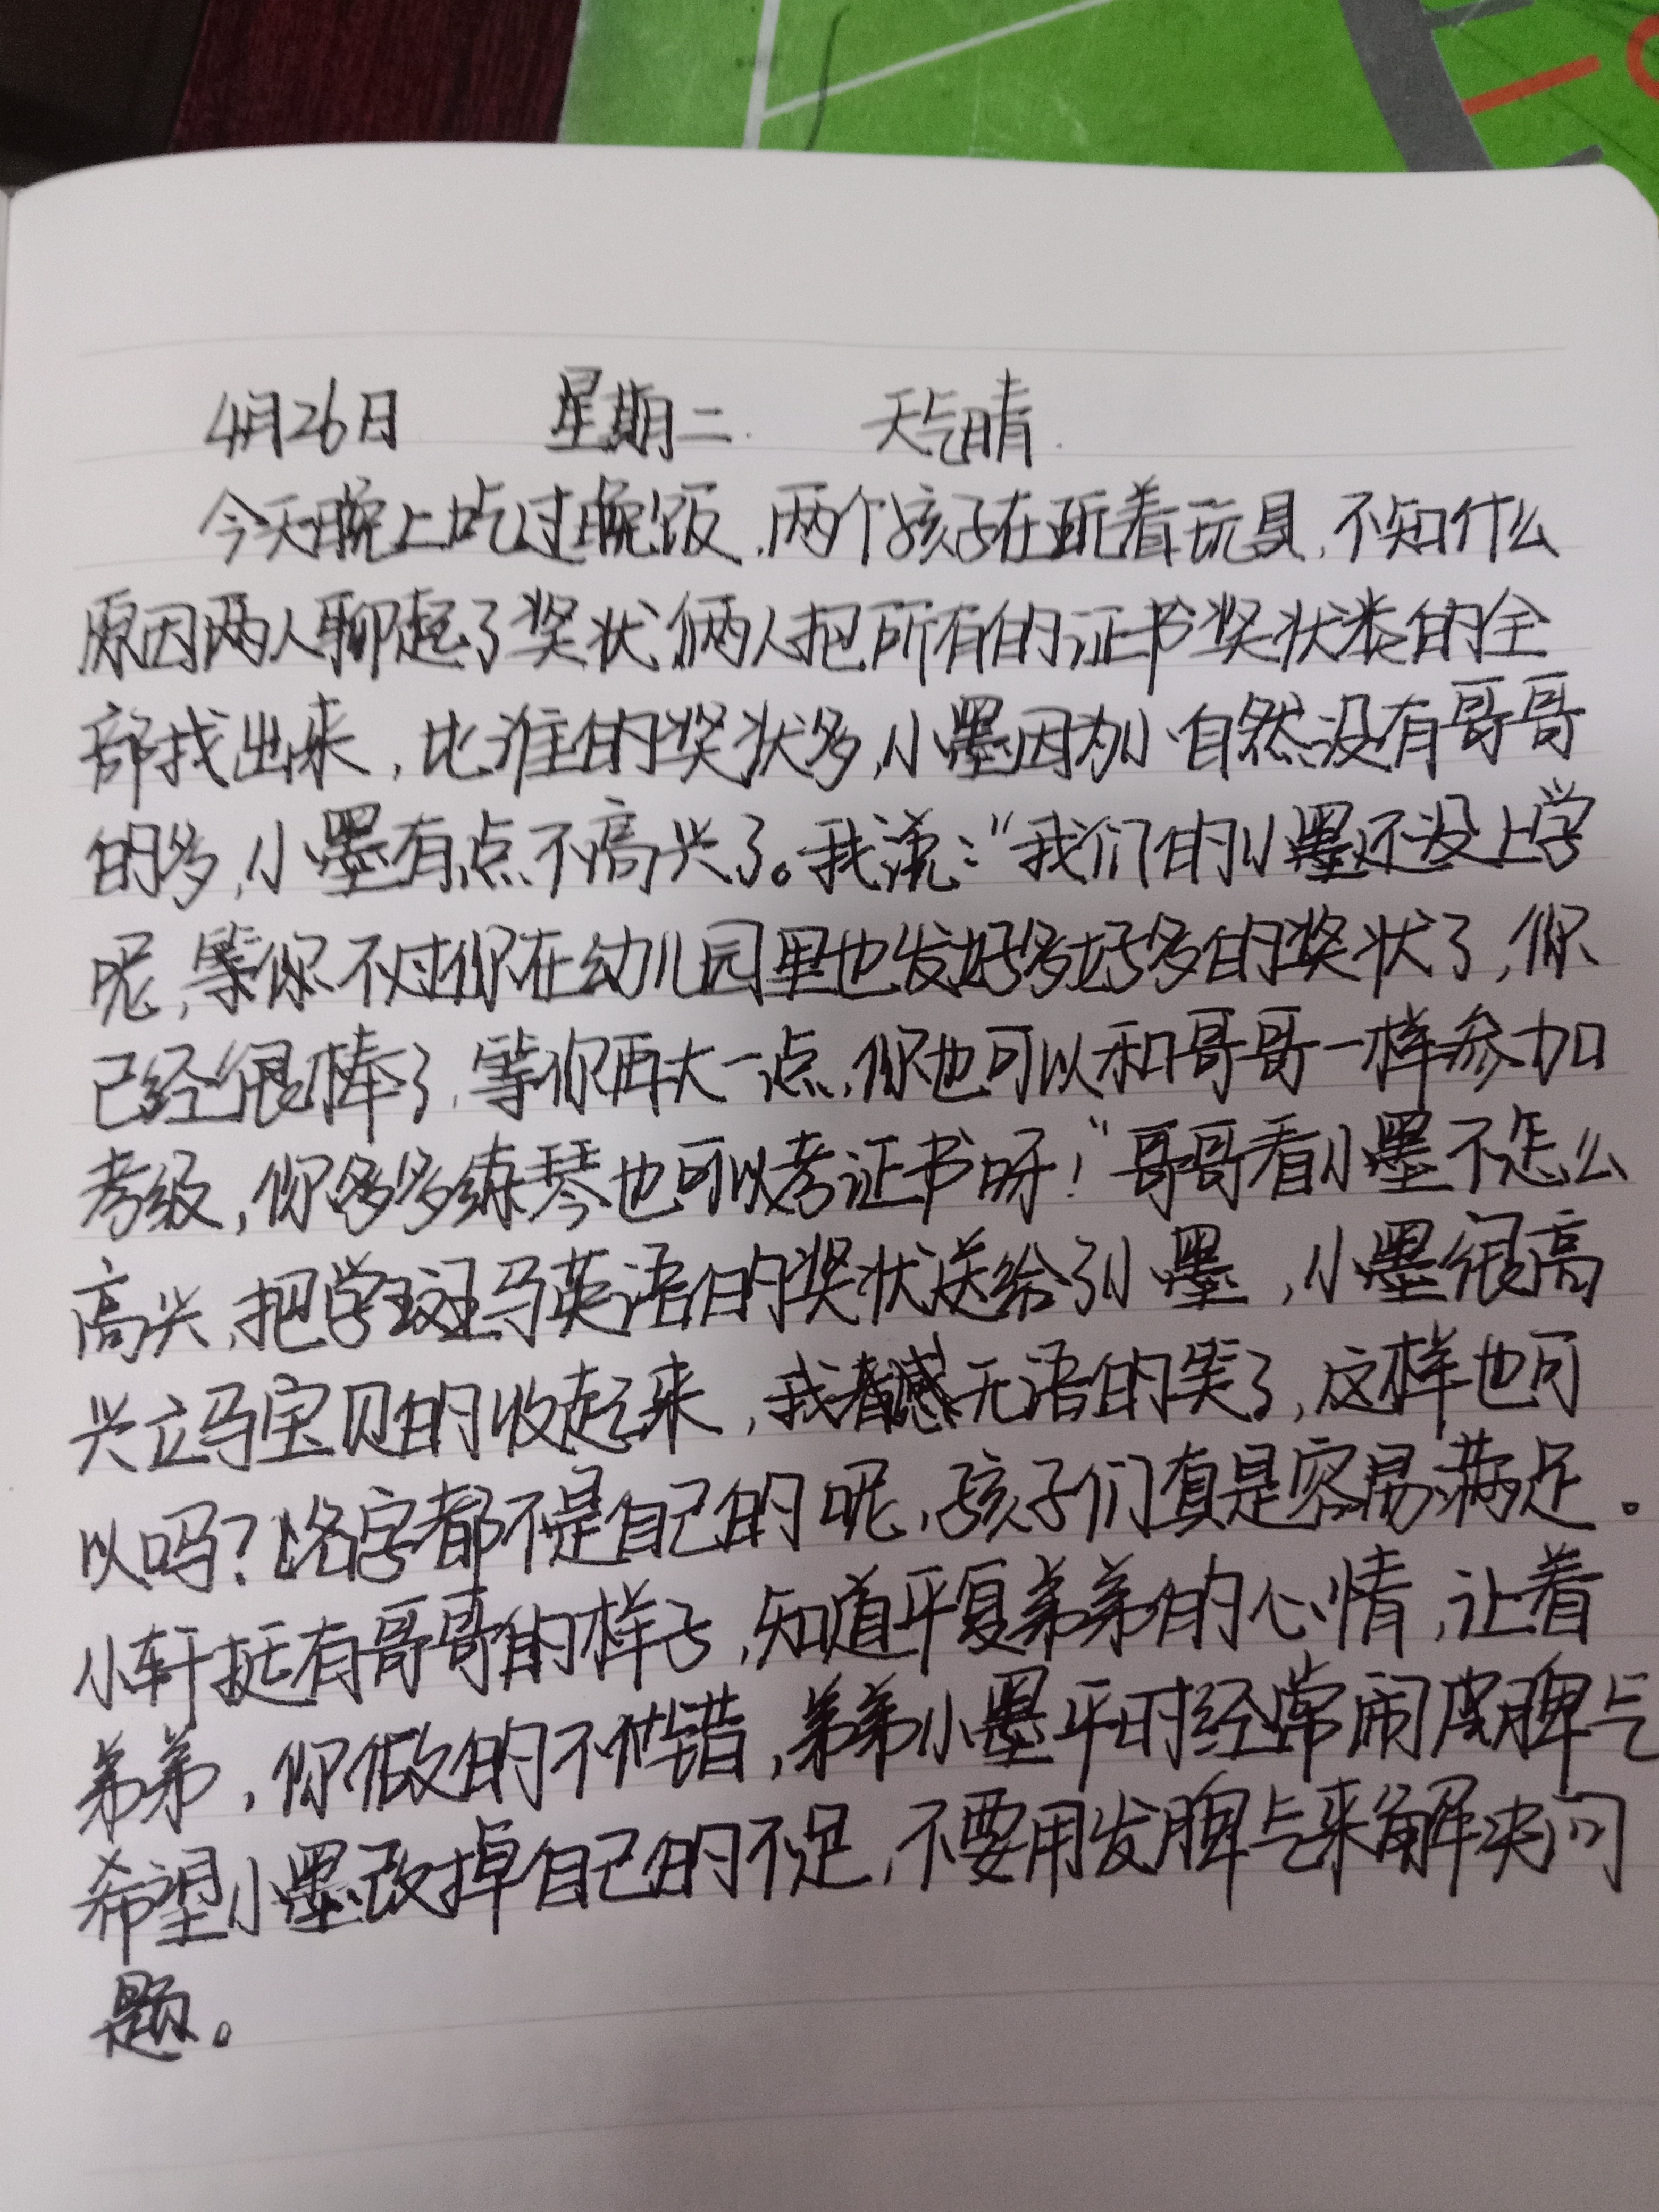 4月26日 星期二. 天气晴.
今天晚上吃过晚饭,两个孩子在玩着玩具,不知什么
原因两人聊起了奖状,俩人把所有的证书奖状类的全
部找出来,比谁的奖状多,小墨因为小自然没有哥哥
的多,小墨有点不高兴了。我说:“我们的小墨还没上学
呢,等你不过你在幼儿园里也发好多好多的奖状了,你
已经很棒了,等你再大一点,你也可以和哥哥一样参加
考级,你多多练琴也可以考证书呀!”哥哥看小墨不怎么
高兴,把学斑马英语的奖状送给了小墨,小墨很高
兴立马宝贝的收起来,我感无语的笑了,这样也可
以吗?名字都不是自己的呢,孩子们真是容易满足。
小轩挺有哥哥的样子,知道平复弟弟的心情,让着
弟弟,你做的不错,弟弟小墨平时经常闹皮脾气
希望小墨改掉自己的不足,不要用发脾气来解决问
题。